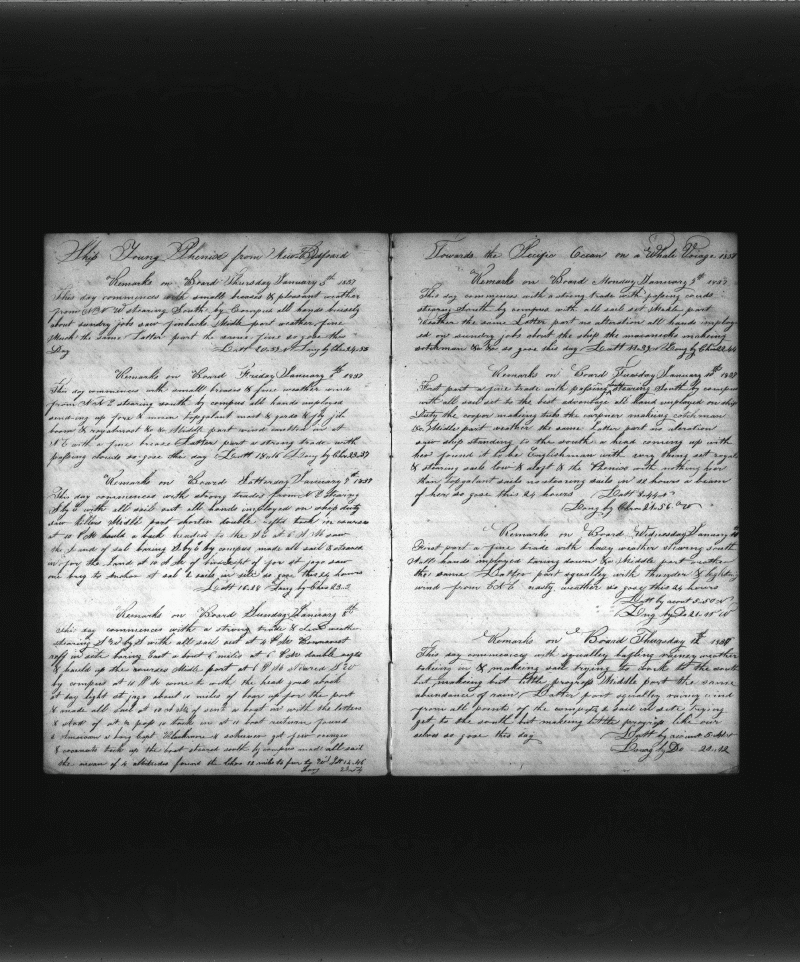 Ship Young Phenix from New Bedford
Remarks on Board Thursday January 5th 1837
This day commences with small breases & pleasant weather
from W steering South by Compass all hands buissely
about sundry jobs saw finbacks Middle part weather fine
Much the same Latter part the same fine so gose this
Day Latt 20.33 N Long by Chro 24.38
Remarks on Board Friday January 6th 1837
This day commences with small breases & fine weather wind
from N E stearing south by compas all hands imployed
sending up fore & mizen topgalant mast & yards & fly jib
boom & royalmast &c &c Middle part wind
N E with a fine brease Latter part a strong trade with
passing clouds so gose this day Latt 18.16 Long by Chro 23.37
Remarks on Board Satterday January 7th 1837
This day commences with strong trades from N E Stearing
S by E with all sail out all hands imployed on ships duty
saw Middle part shorten double took in courses
at 10 P M headed to the N E at 6 A M saw
the land of sal baring S by E by compass made all sail & steared
in for the Land at 10 A M of jago saw
one brig to Anchor at sal 2 sails in site so gose this 24 hours
Latt 16.38 Long by Chro 23.2
Remarks on Board Sunday January 8th
this day commences with a strong trade & clear weather
stearing by with all sail out at 4 P M Bonavist
reff in site baring East a bout 6 miles at 6 P M double
& hauld up the courses Middle part at 1 P M Steared S W
by compass at 11 P M wore to with the head
at day light st jago about 10 miles of bore up for the port
& made all sail at 10 A M sent a boat in with the letters
& stood of at took in at boat return found
2 American a brig Capt Blackmore & schuner got few oranges
& coconuts took up the boat steared south by compass made all sail
the mean of 4 Altitudes found the 12 miles to fur by Latt 14.46
Long
Towards the Pacific Ocean on a Whale Voiage 1837
Remarks on Board Monday January 9th 1837
This day commences with a strong trade with passing clouds
stearing South by compass with all sail set Middle part
Weather the same Latter part no alteration all hands imploy
ed on sundry jobs about the ship the making
&c &c so gose this day Latt Long by Chro 22.44
Remarks on Board Tuesday January 10th 1837
First part a fine trade with passing Stearing South by compass
with all sail set to the best advantage all hand imployed on ship
Duty the cooper making tubs the carpner making
&c Middle part weather the same Latter part no alteration
saw ship standing to the south a head coming up with
her found it to be Englishman with evry thing set royals
& stearing sails low & aloft & the Phenix with nothing but
than topgalant sails no stearing sails in 12 hours a beam
of her so gose this 24 hours Latt 8.44 N
Long by Chro 21.56 W
Remarks on Board Wednesday January 11
First part a fine trade with hazy weather stearing south
All hands imployed taring down &c Middle part weather
the same Latter part squalley with thunder & lightning
wind from E N E nasty weather so gose this 24 hours
Latt by acout 5.50 N
Long by Do 21.18 W
Remarks on Board Thursday 12th 1837
This day commences with squalley bafling rainey weather
taking in & makeing sail trying to work to the south
but making but little progress Middle part the same
abundance of rain Latter part squalley wind
from all points of the compass a sail in site trying
get to the south but making little progress like our
selves so gose this day Latt by acount 5.41 N
Long by Do 20.12